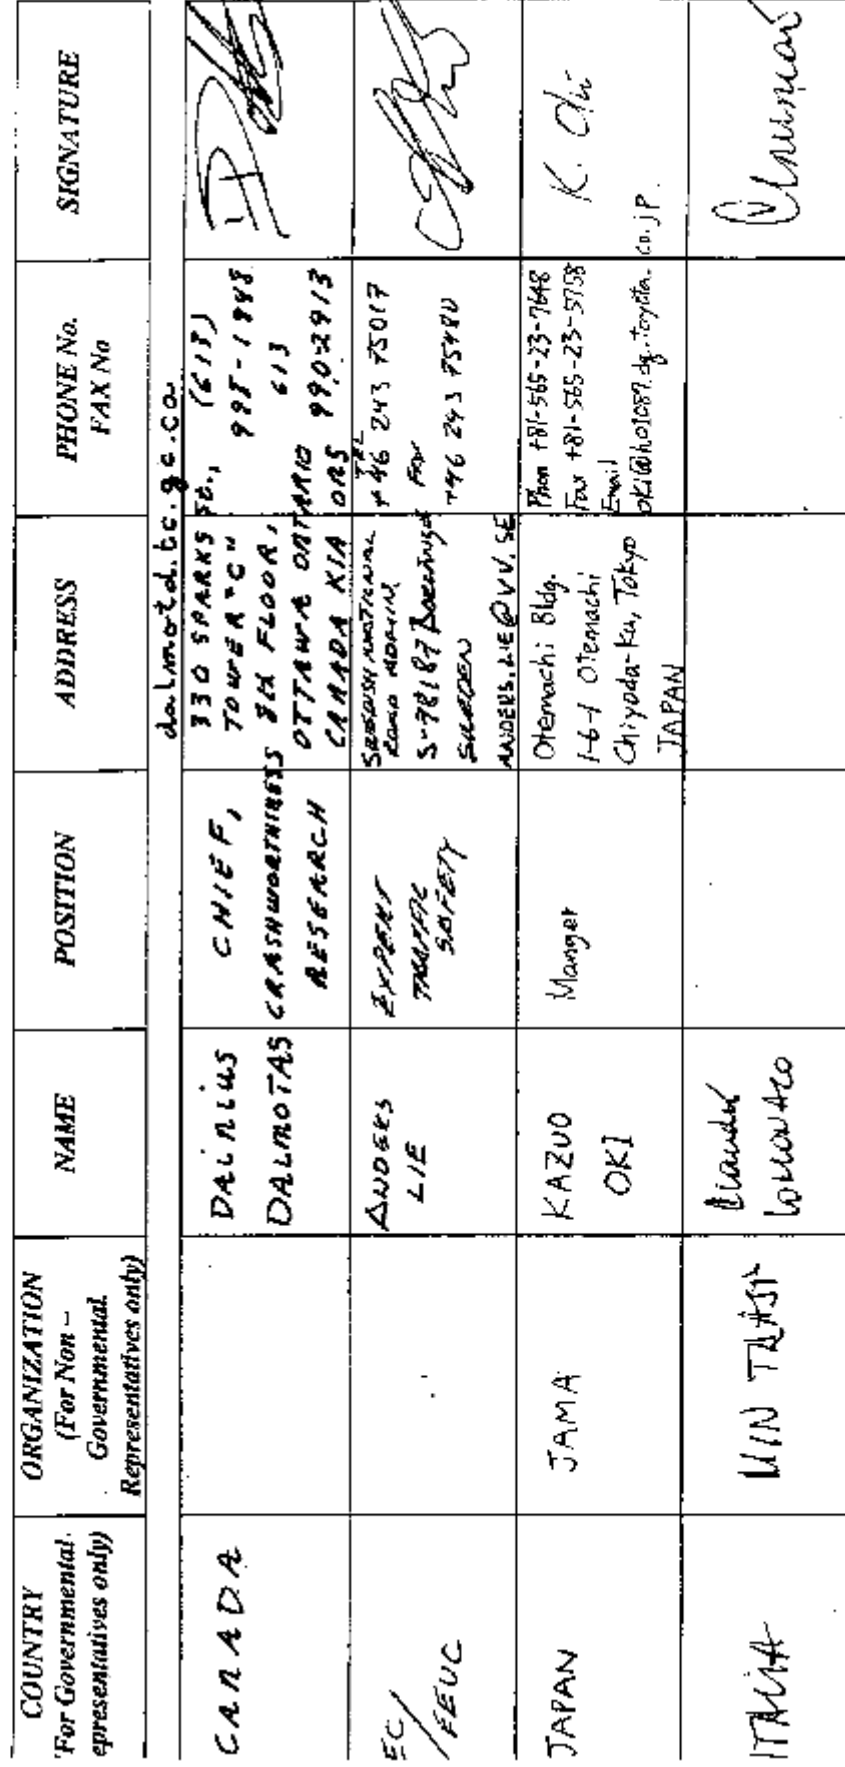 COUNTRY
'For Governmental
epresentatives only)
ORGANIZATION
(For Non –
Governmental
Representatives only)
NAME
POSITION
ADDRESS
PHONE No.
FAX No
SIGNATURE
CANADA
DAINIUS
DALMOTAS
CHIEF,
CRASHWORTHINESS
RESEARCH
dalmotd.tc.gc.ca
330 SPARKS St.,
TOWER "C"
8th FLOOR,
OTTAWA ONTARIO
CANADA K1A 0N5
(613)
998-1948
613
990-2913
EC
/FEUC
ANDERS
LIE
EXPERT
TRAFFIC
SAFETY
SWEDISH NATIONAL
ROAD ADMIN,
S-78187
SWEDEN
ANDERS.LIE@VV.SE
TEL
+46 243 75017
FAX
+46 243 75480
JAPAN
JAMA
KAZUO
OKI
Manger
Otemachi Bldg.
1-6-1 Otemachi
Chiyoda-ku, Tokyo
JAPAN
Phon +81-565-23-7648
Fax +81-565-23-5758
Email
oki@h01087.dg.toyota.co.jp.
K. Oki
ITALIA
MIN TRASP
LOMONACO